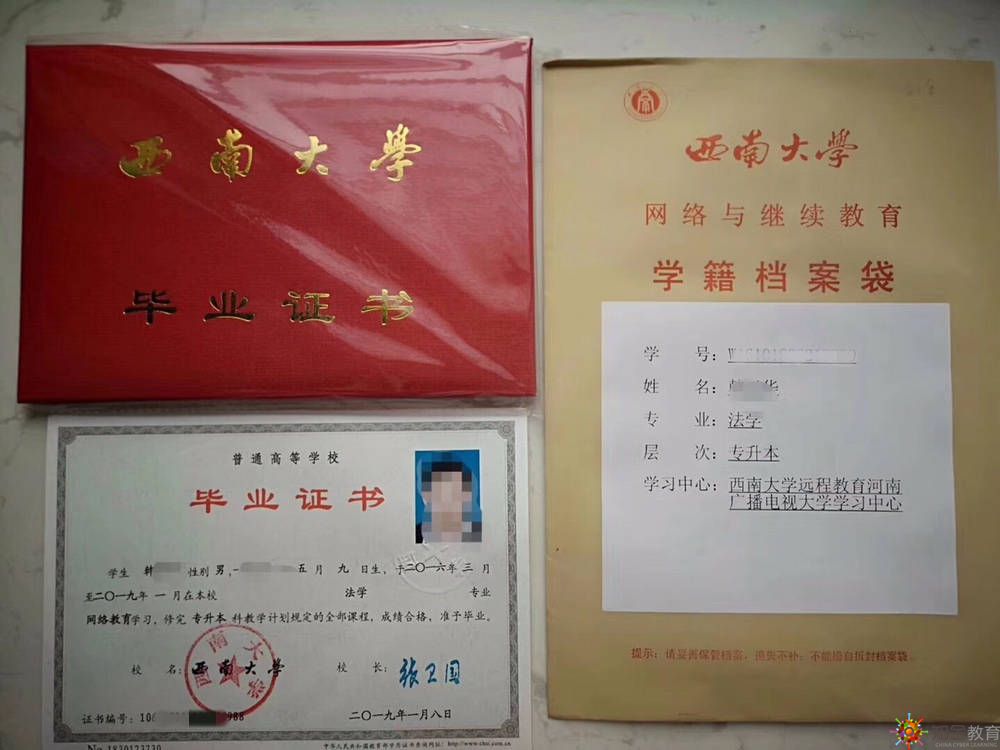 西南大學
毕业证书
西南大學
网络与继续教育
学籍档案袋
学 号：
姓 名：华
专 业：法学
层 次：专升本
学习中心：西南大学远程教育河南
广播电视大学学习中心
提示：请妥善保管档案，遗失不补；不能擅自拆封档案袋
普通高等学校
毕业证书
学生 韩 性别 男，一 五月 九 日生，于二〇一六年 三 月
至二〇一九年 一 月在本校 法学 专业
网络教育学习，修完 专升本 科教学计划规定的全部课程，成绩合格，准予毕业。
校 名：西南大學 校 长：张卫国
证书编号：10 988
二〇一九年一月八日
中华人民共和国教育部学历证书查询网址：http://www.chsi.com.cn
教育